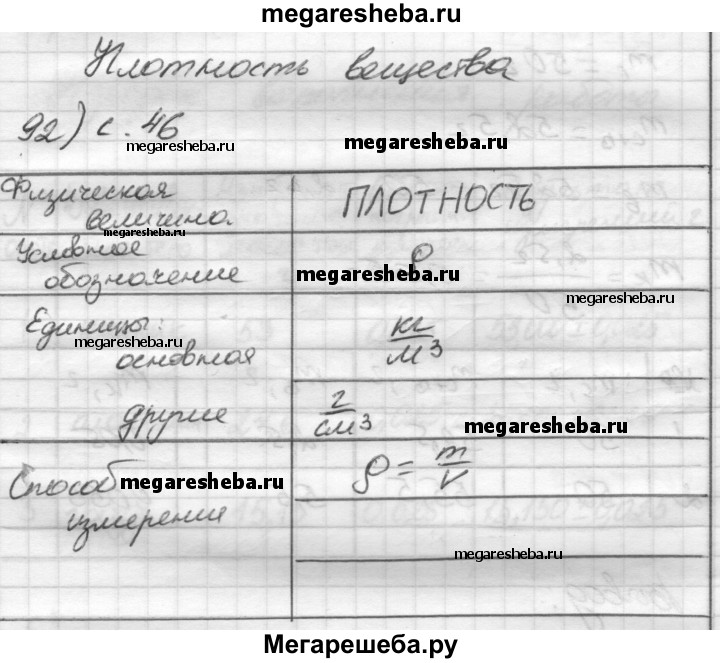 megaresheba.ru
Плотность вещества
92) с. 46
megaresheba.ru
megaresheba.ru
Физическая
величина
ПЛОТНОСТЬ
megaresheba.ru
Условное
обозначение
ρ
megaresheba.ru
megaresheba.ru
Единицы:
основная
кг/м³
megaresheba.ru
другие
г/см³
megaresheba.ru
Способ
измерения
megaresheba.ru
ρ = m/V
megaresheba.ru
Мегарешеба.ру